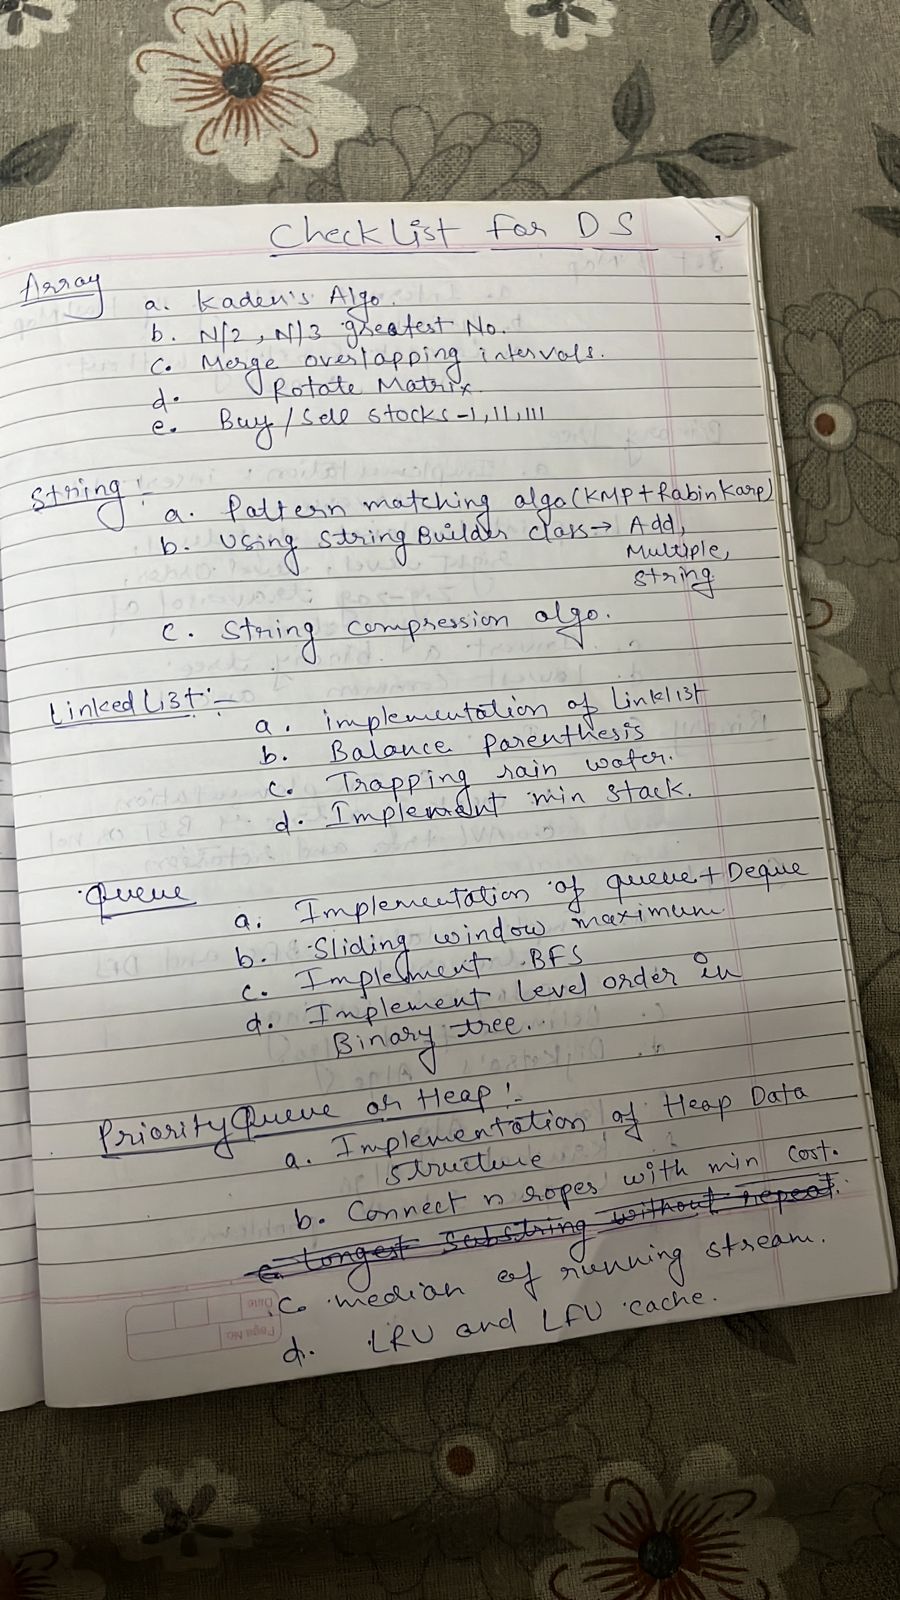 Checklist for DS
Array
a. Kaden's Algo.
b. N/2, N/3 greatest No.
c. Merge overlapping intervals.
d. Rotate Matrix.
e. Buy/Sell stocks-I,II,III
String :-
a. Pattern matching algo(KMP+RabinKarp)
b. Using StringBuilder class→ Add,
Multiple,
String.
c. String compression algo.
Linked List :-
a. implementation of linklist
b. Balance Parenthesis
c. Trapping rain water.
d. Implement min stack.
Queue
a. Implementation of queue + Deque
b. Sliding window maximum.
c. Implement BFS
d. Implement Level order in
Binary tree.
Priority Queue or Heap :-
a. Implementation of Heap Data
Structure
b. Connect n ropes with min cost.
c. Longest Substring without repeat.
c. median of running stream.
d. LRU and LFU cache.
Date
Page No.